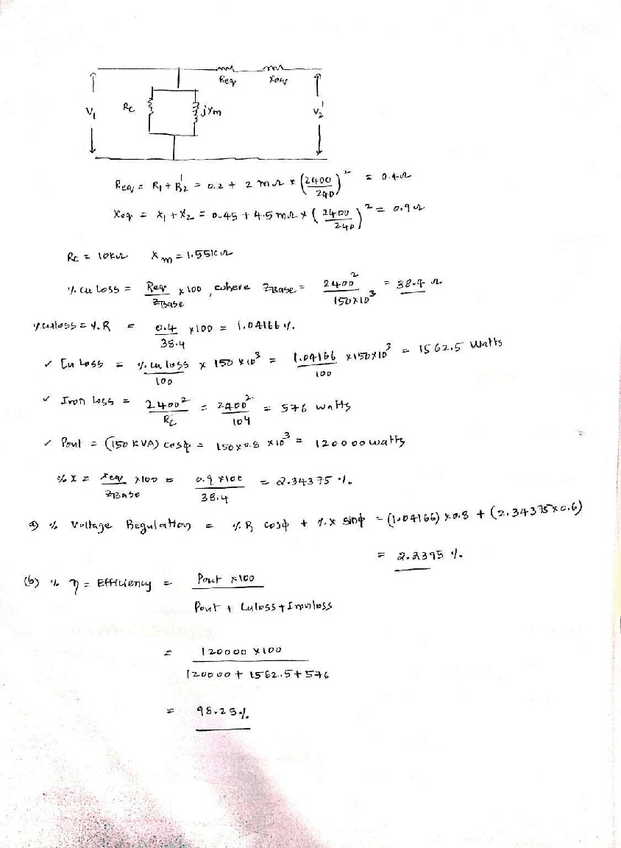 Req Xeq
V1 Rc jXm V2'
Req = R1 + R2' = 0.2 + 2 mΩ × (2400/240)^2 = 0.4Ω
Xeq = X1 + X2 = 0.45 + 4.5 mΩ × (2400/240)^2 = 0.9Ω
Rc = 10kΩ Xm = 1.55kΩ
% cu loss = Req/ZBase × 100, where ZBase = 2400^2/150×10^3 = 38.4 Ω
% culoss = %R = 0.4/38.4 × 100 = 1.04166 %.
✓ Cu Loss = % cu loss/100 × 150 × 10^3 = 1.04166/100 × 150×10^3 = 1562.5 Watts
✓ Iron loss = 2400^2/Rc = 2400^2/10^4 = 576 watts
✓ Pout = (150 KVA) cosϕ = 150×0.8 × 10^3 = 120000 watts
% X = Xeq/ZBase ×100 = 0.9 × 100/38.4 = 2.34375 %.
a) % Voltage Regulation = %R cosϕ + %x sinϕ = (1.04166) × 0.8 + (2.34375×0.6)
= 2.2395 %
(b) % η = Efficiency = Pout × 100/Pout + Culoss + Ironloss
= 120000 × 100/120000 + 1562.5 + 576
= 98.25%